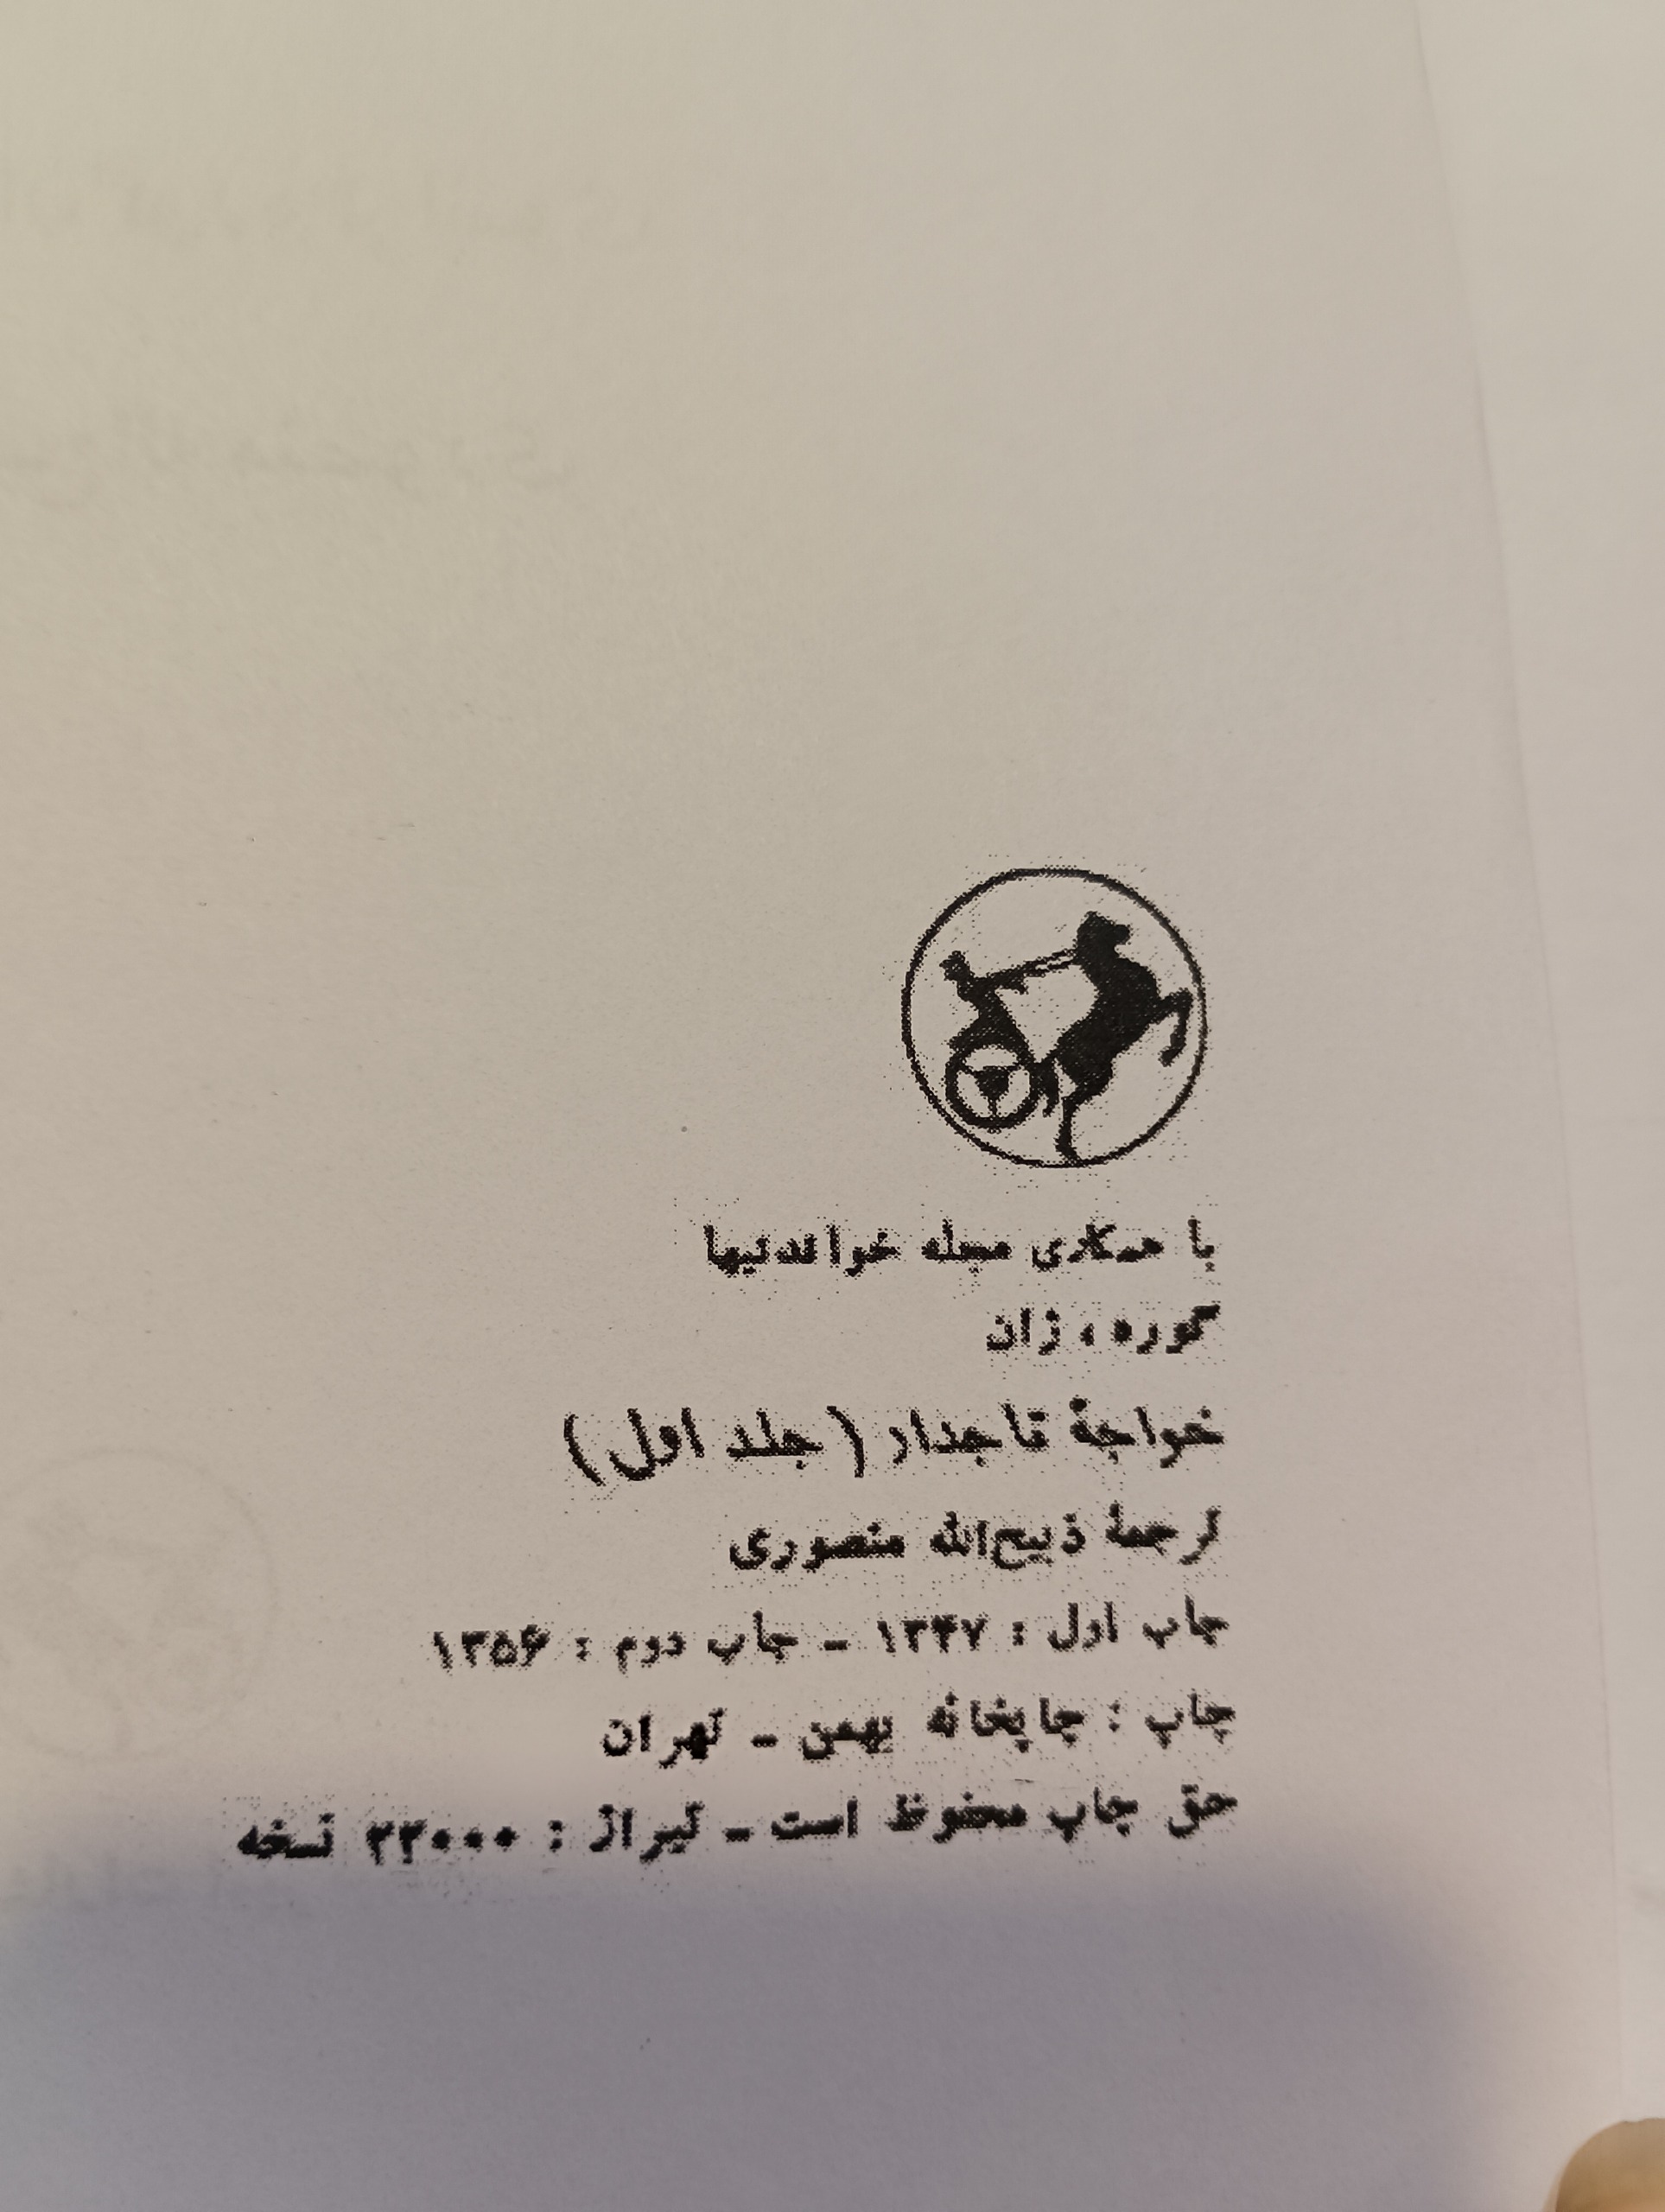 با همکاری مجله خواندنیها
گوره، ژان
خواجهٔ تاجدار (جلد اول)
ترجمهٔ ذبیح‌الله منصوری
چاپ اول : ۱۳۴۷ - چاپ دوم : ۱۳۵۶
چاپ : چاپخانه بهمن - تهران
حق چاپ محفوظ است - تیراژ : نسخه